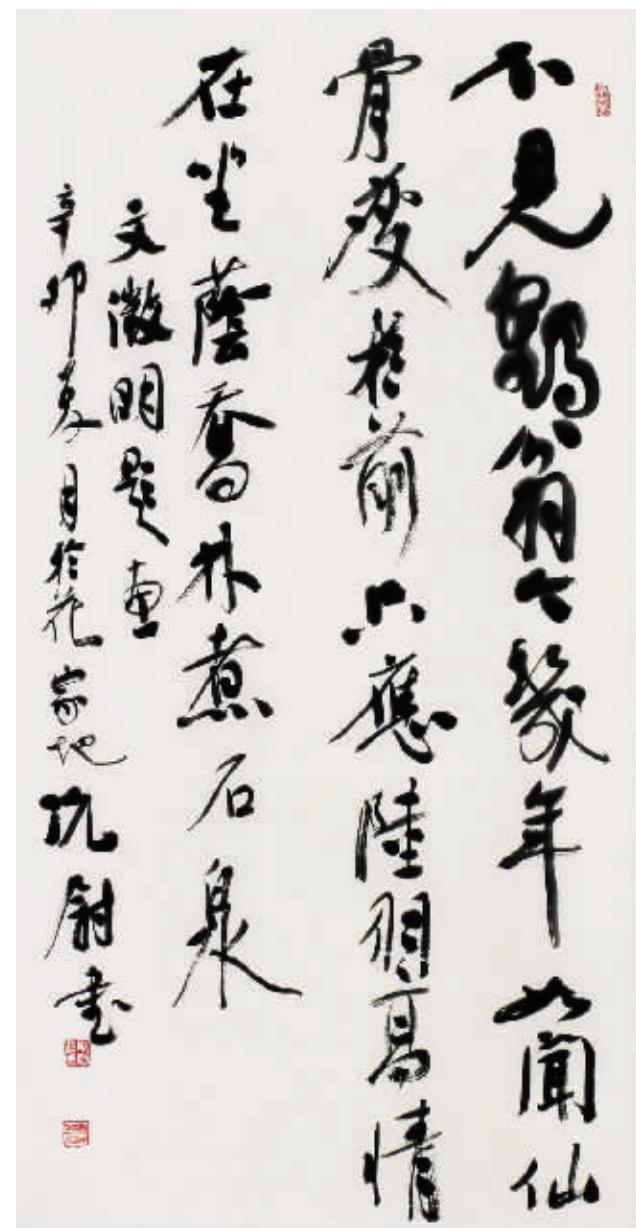 不見鶴翁今幾年如聞仙
骨瘦於前只應陸羽高情
在坐蔭喬林煮石泉
文徵明題畫
辛卯夏月於花家地書